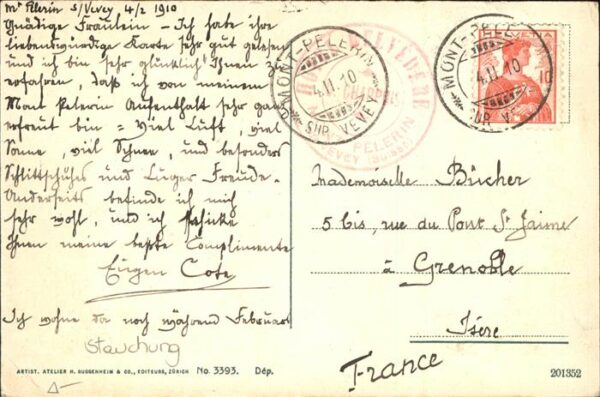 Mt Pelerin s/Vevey 4/2 1910
Gnädige Fräulein – Ich habe ihre
liebenswürdige Karte sehr gut gelesen
und ich bin sehr glücklich Ihnen zu
erfahren, daß ich von meinem
Mont Pelerin Aufenthalt sehr ganz
erfreut bin = Viel Luft, viel
Sonne, viel Schnee, und besonders
Schlittschuhs und Luger Freude.
Anderseits befinde ich mich
sehr wohl, und ich schicke
Ihnen meine beste Complimente
Eugen Cote
Ich wohne da noch während Februar
Stauchung
ARTIST. ATELIER H. GUGGENHEIM & CO., EDITEURS, ZÜRICH No. 3393. Dép.
MONT-PELERIN
4.II.10
SUR VEVEY
BELVEDERE
PELERIN
VEVEY (SUISSE)
HELVETIA
10
MONT-PELERIN
4.II.10
SUR VEVEY
Mademoiselle Bücher
5 bis, rue du Pont St Jaime
à Grenoble
Isère
France
201352